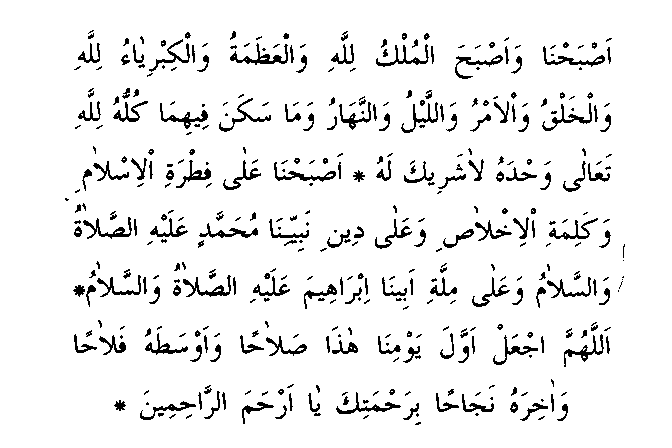 اَصْبَحْنَا وَاَصْبَحَ الْمُلْكُ لِلَّهِ وَالْعَظَمَةُ وَالْكِبْرِيٰاءُ لِلَّهِ
وَالْخَلْقُ وَاْلاَمْرُ وَاللَّيْلُ وَالنَّهَارُ وَمَا سَكَنَ فِيهِمَا كُلُّهُ لِلَّهِ
تَعَالٰى وَحْدَهُ لاٰشَرِيكَ لَهُ * اَصْبَحْنَا عَلٰى فِطْرَةِ اْلاِسْلاٰمِ
وَكَلِمَةِ اْلاِخْلاٰصِ وَعَلٰى دِينِ نَبِيِّنَا مُحَمَّدٍ عَلَيْهِ الصَّلاٰةُ
وَالسَّلاٰمُ وَعَلٰى مِلَّةِ اَبِينَا اِبْرَاهِيمَ عَلَيْهِ الصَّلاٰةُ وَالسَّلاٰمُ*
اَللَّهُمَّ اجْعَلْ اَوَّلَ يَوْمِنَا هٰذَا صَلاٰحًا وَاَوْسَطَهُ فَلاٰحًا
وَاٰخِرَهُ نَجَاحًا بِرَحْمَتِكَ يٰا اَرْحَمَ الرَّاحِمِينَ *